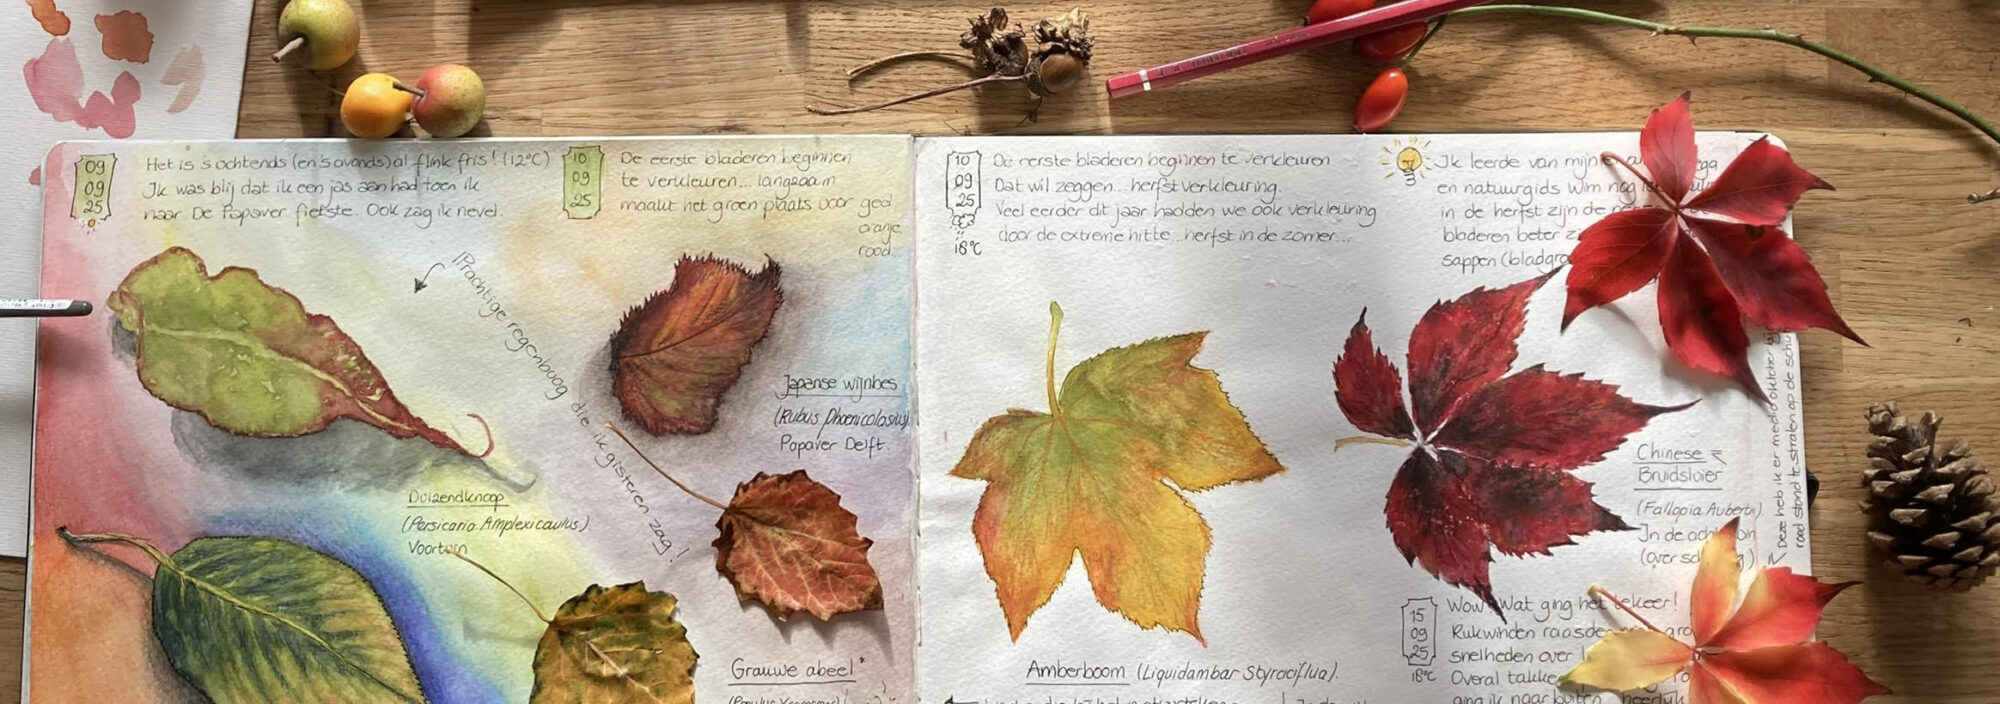 09
09
25
Het is 's ochtends (en 's avonds) al flink fris! (12°C)
Ik was blij dat ik een jas aan had toen ik
naar De Papaver fietste. Ook zag ik nevel.
10
09
25
De eerste bladeren beginnen
te verkleuren... langzaam
maakt het groen plaats voor geel
oranje
rood
Prachtige regenboog die ik gisteren zag!
Japanse wijnbes
(Rubus Phoenicolasius)
Papaver Delft.
Duizendknoop
(Persicaria Amplexicaulus).
Voortuin
Grauwe abeel*
10
09
25
18°C
De eerste bladeren beginnen te verkleuren
Dat wil zeggen... herfstverkleuring.
Veel eerder dit jaar hadden we ook verkleuring
door de extreme hitte... herfst in de zomer...
Ik leerde van mijn
en natuurgids Wim nog
in de herfst zijn de
bladeren beter
sappen (bladgro
Amberboom (Liquidambar Styraciflua).
Chinese
Bruidsluier
(Fallopia Auberti)
In de
(over
Deze heb ik er medio oktober
rood stond te stralen op de
15
09
25
18°C
Wow! Wat ging het tekeer!
Rukwinden raasden
snelheden over
Overal takken
ging ik naar buiten heerlijk